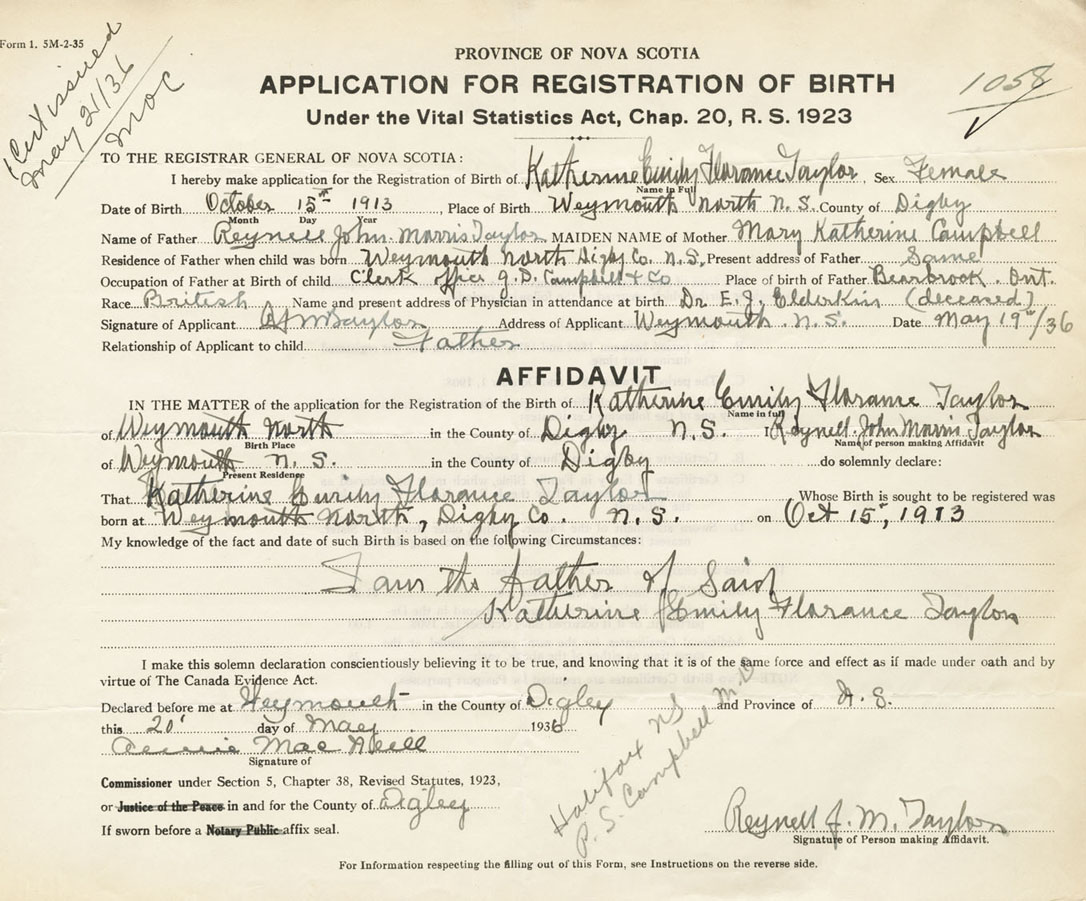 Form 1. 5M-2-35
Cert issued
May 21/36
MOC
PROVINCE OF NOVA SCOTIA
APPLICATION FOR REGISTRATION OF BIRTH
Under the Vital Statistics Act, Chap. 20, R. S. 1923
1058
TO THE REGISTRAR GENERAL OF NOVA SCOTIA:
I hereby make application for the Registration of Birth of Katherine Emily Florance Taylor, Sex Female
Name in Full
Date of Birth October 15th 1913, Place of Birth Weymouth North N. S. County of Digby
Month Day Year
Name of Father Reynell John Morris Taylor MAIDEN NAME of Mother Mary Katherine Campbell
Residence of Father when child was born Weymouth North Digby Co. N. S. Present address of Father Same
Occupation of Father at Birth of child Clerk office G. D. Campbell & Co Place of birth of Father Bearbrook Ont.
Race British Name and present address of Physician in attendance at birth Dr E. J. Elderkin (deceased)
Signature of Applicant Taylor Address of Applicant Weymouth N. S. Date May 19th/36
Relationship of Applicant to child Father
AFFIDAVIT
IN THE MATTER of the application for the Registration of the Birth of Katherine Emily Florance Taylor
Name in full
of Weymouth North in the County of Digby N. S. I Reynell John Morris Taylor
Birth Place Name of person making Affidavit
of Weymouth N. S. in the County of Digby do solemnly declare:
Present Residence
That Katherine Emily Florance Taylor Whose Birth is sought to be registered was
born at Weymouth North, Digby Co. N. S. on Oct 15th, 1913
My knowledge of the fact and date of such Birth is based on the following Circumstances:
I am the father of Said
Katherine Emily Florance Taylor
I make this solemn declaration conscientiously believing it to be true, and knowing that it is of the same force and effect as if made under oath and by
virtue of The Canada Evidence Act.
Declared before me at Weymouth in the County of Digby and Province of N. S.
this 20' day of May 1936
Annie MacNeill
Signature of
Commissioner under Section 5, Chapter 38, Revised Statutes, 1923,
or Justice of the Peace in and for the County of Digby
If sworn before a Notary Public affix seal.
Halifax NS
P. S. Campbell M. D
Reynell J. M. Taylor
Signature of Person making Affidavit.
For Information respecting the filling out of this Form, see Instructions on the reverse side.